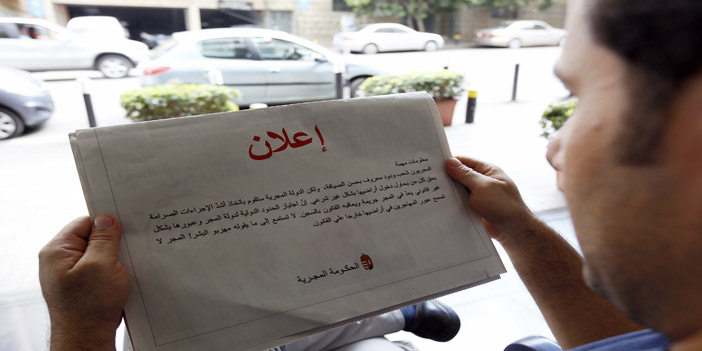 إعلان
معلومات مهمة
المجريون شعب ودود معروف بحسن الضيافة, ولكن الدولة المجرية ستقوم بأتخاذ أشدّ الإجراءات الصرامة
بحق كل من يحاول دخول أراضيها بشكل غير شرعي. إنّ اجتياز الحدود الدولية لدولة المجر وعبورها بشكل
غير قانوني يعدّ في المجر جريمة ويعاقبه القانون بالسجن. لا تستمع إلى ما يقوله مهربو البشر! المجر لا
تسمح بعبور المهاجرين في أراضيها خارجا على القانون.
الحكومة المجرية